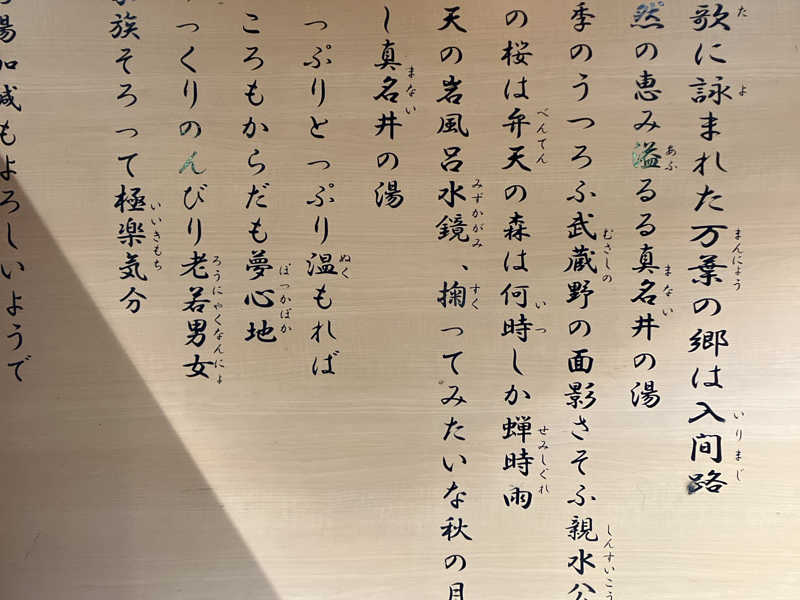 歌に詠まれた万葉の郷は入間路
然の恵み溢るる真名井の湯
季のうつろふ武蔵野の面影さそふ親水公
の桜は弁天の森は何時しか蝉時雨
天の岩風呂水鏡、掬ってみたいな秋の月
し真名井の湯
っぷりとっぷり温もれば
ころもからだも夢心地
っくりのんびり老若男女
族そろって極楽気分
湯加減もよろしいようで